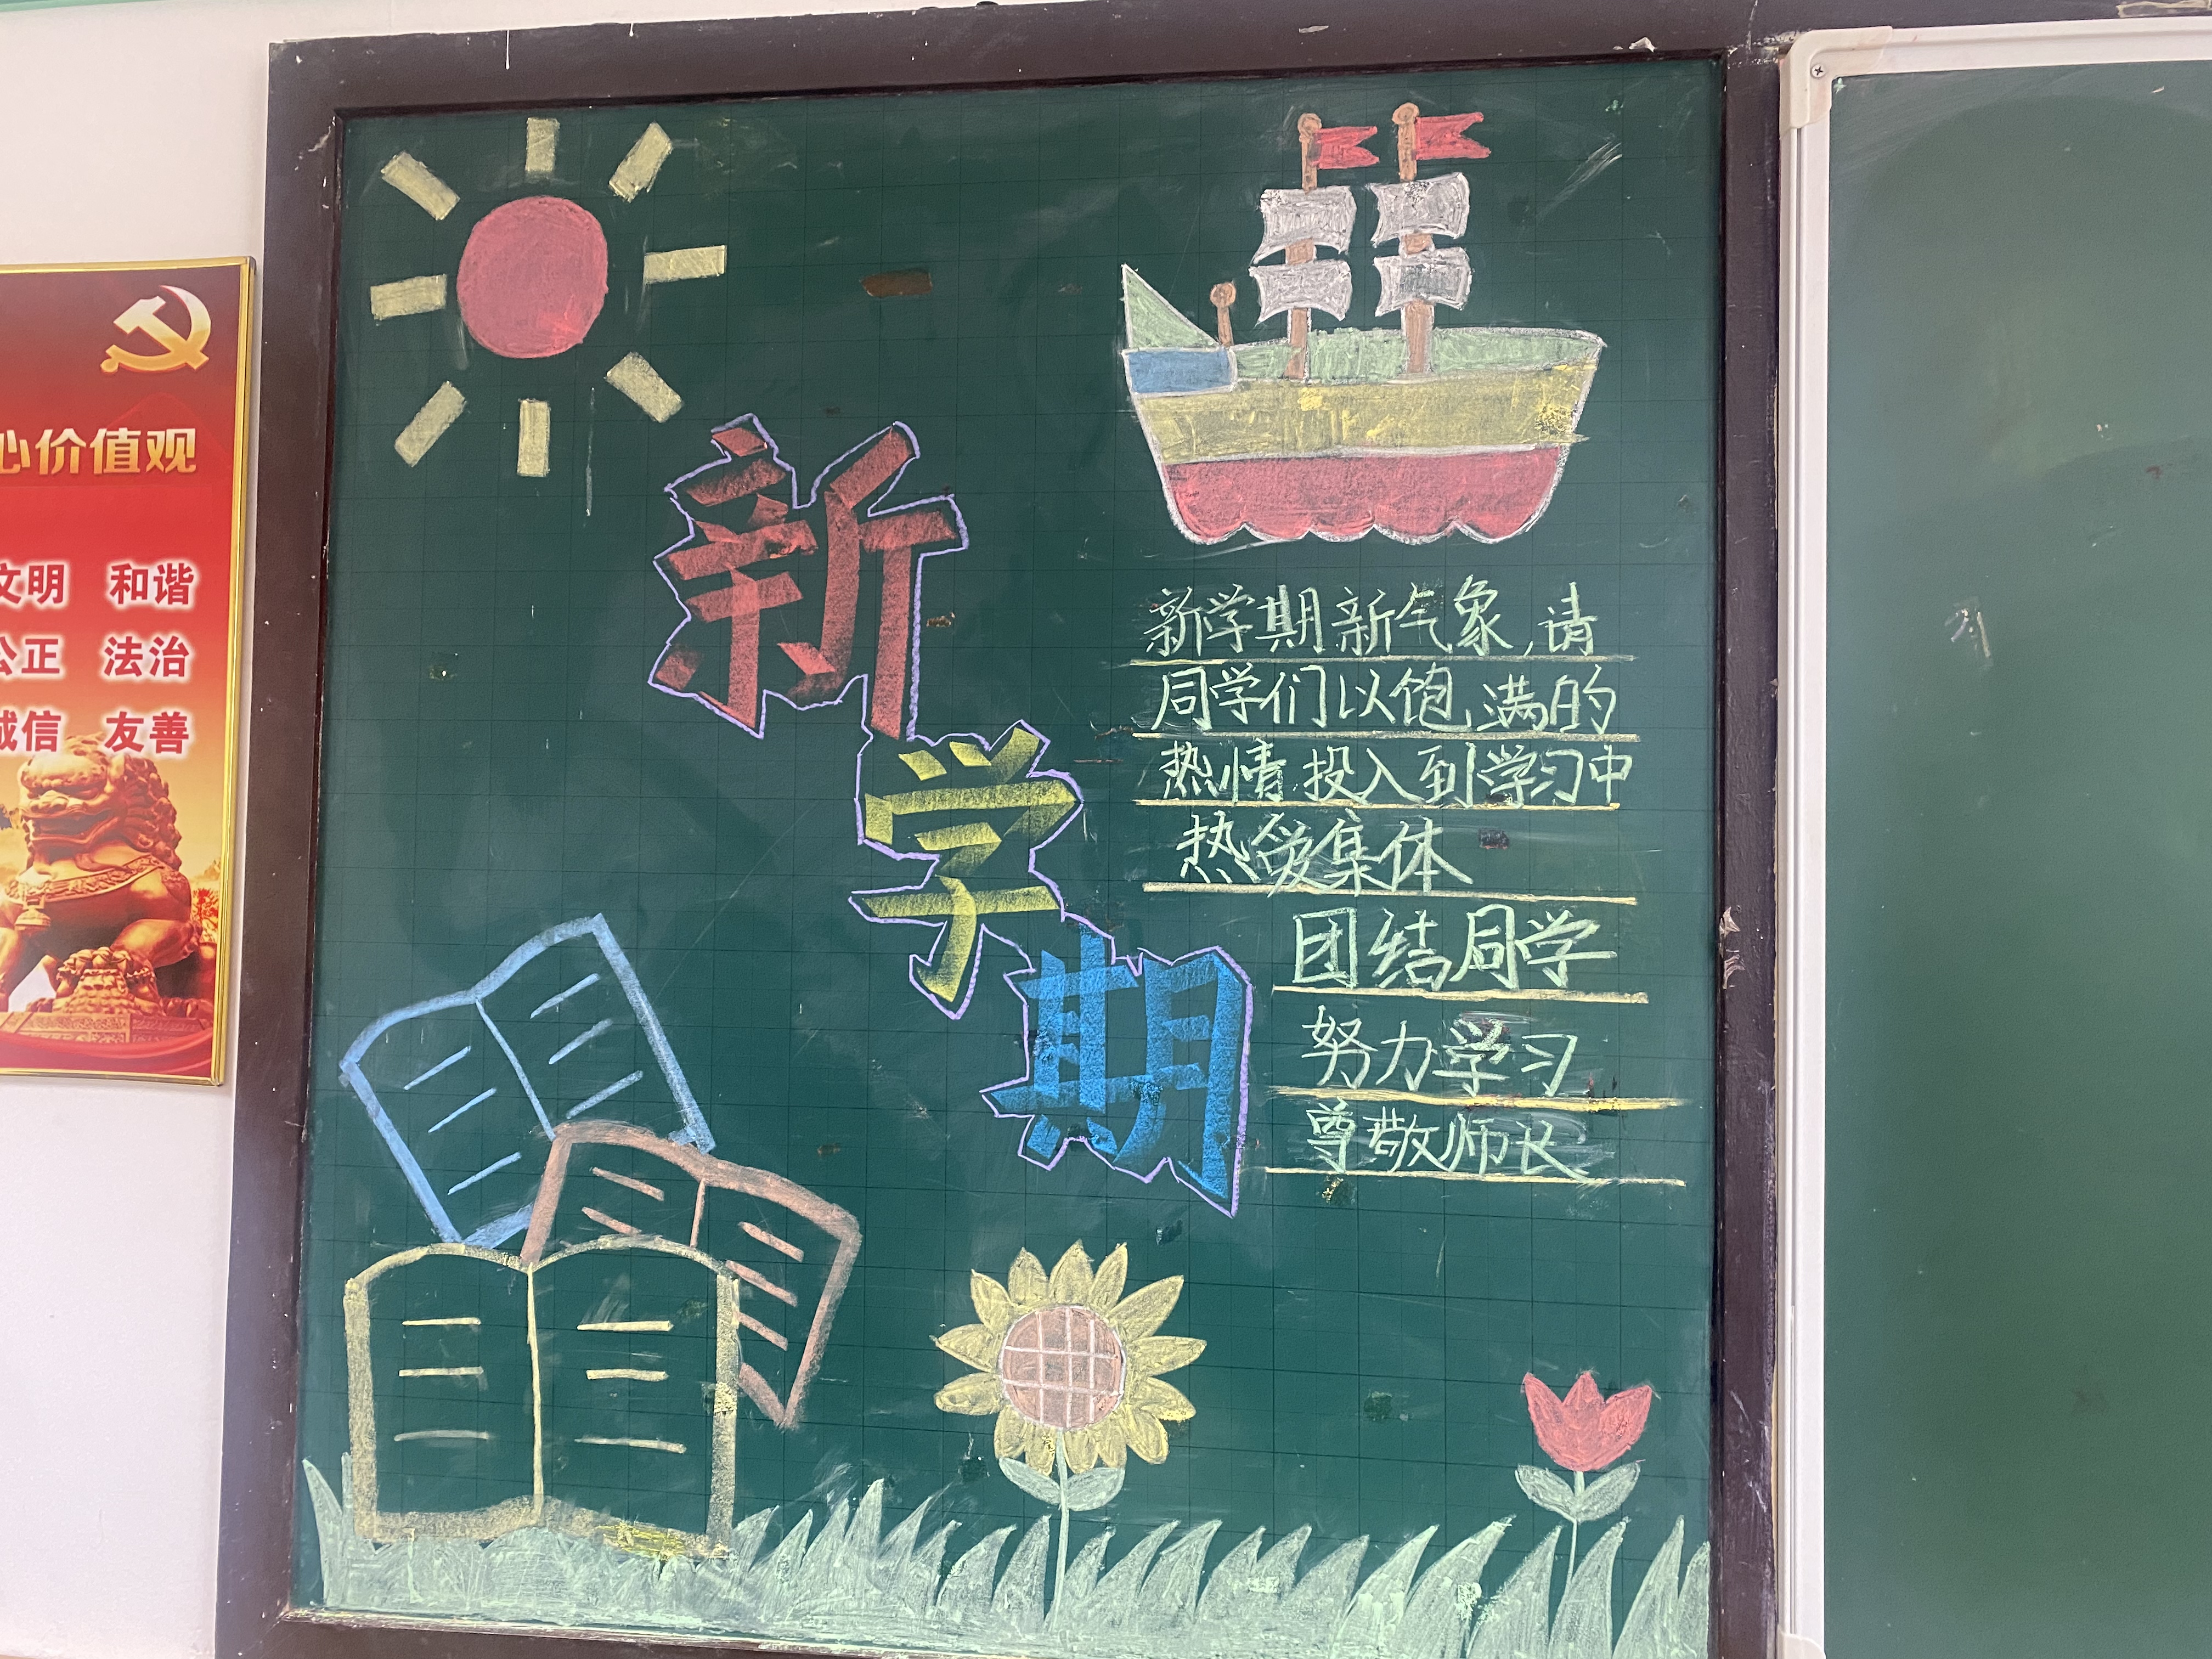 心价值观
文明 和谐
公正 法治
诚信 友善
新
学
期
新学期新气象,请
同学们以饱满的
热情投入到学习中
热爱集体
团结同学
努力学习
尊敬师长